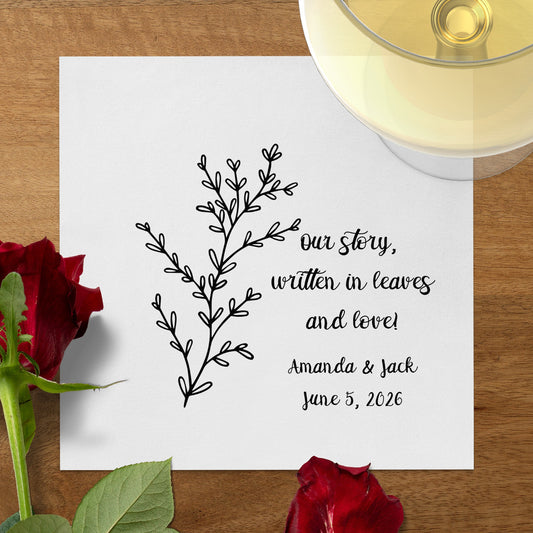 Our story,
written in leaves
and love!
Amanda & Jack
June 5, 2026